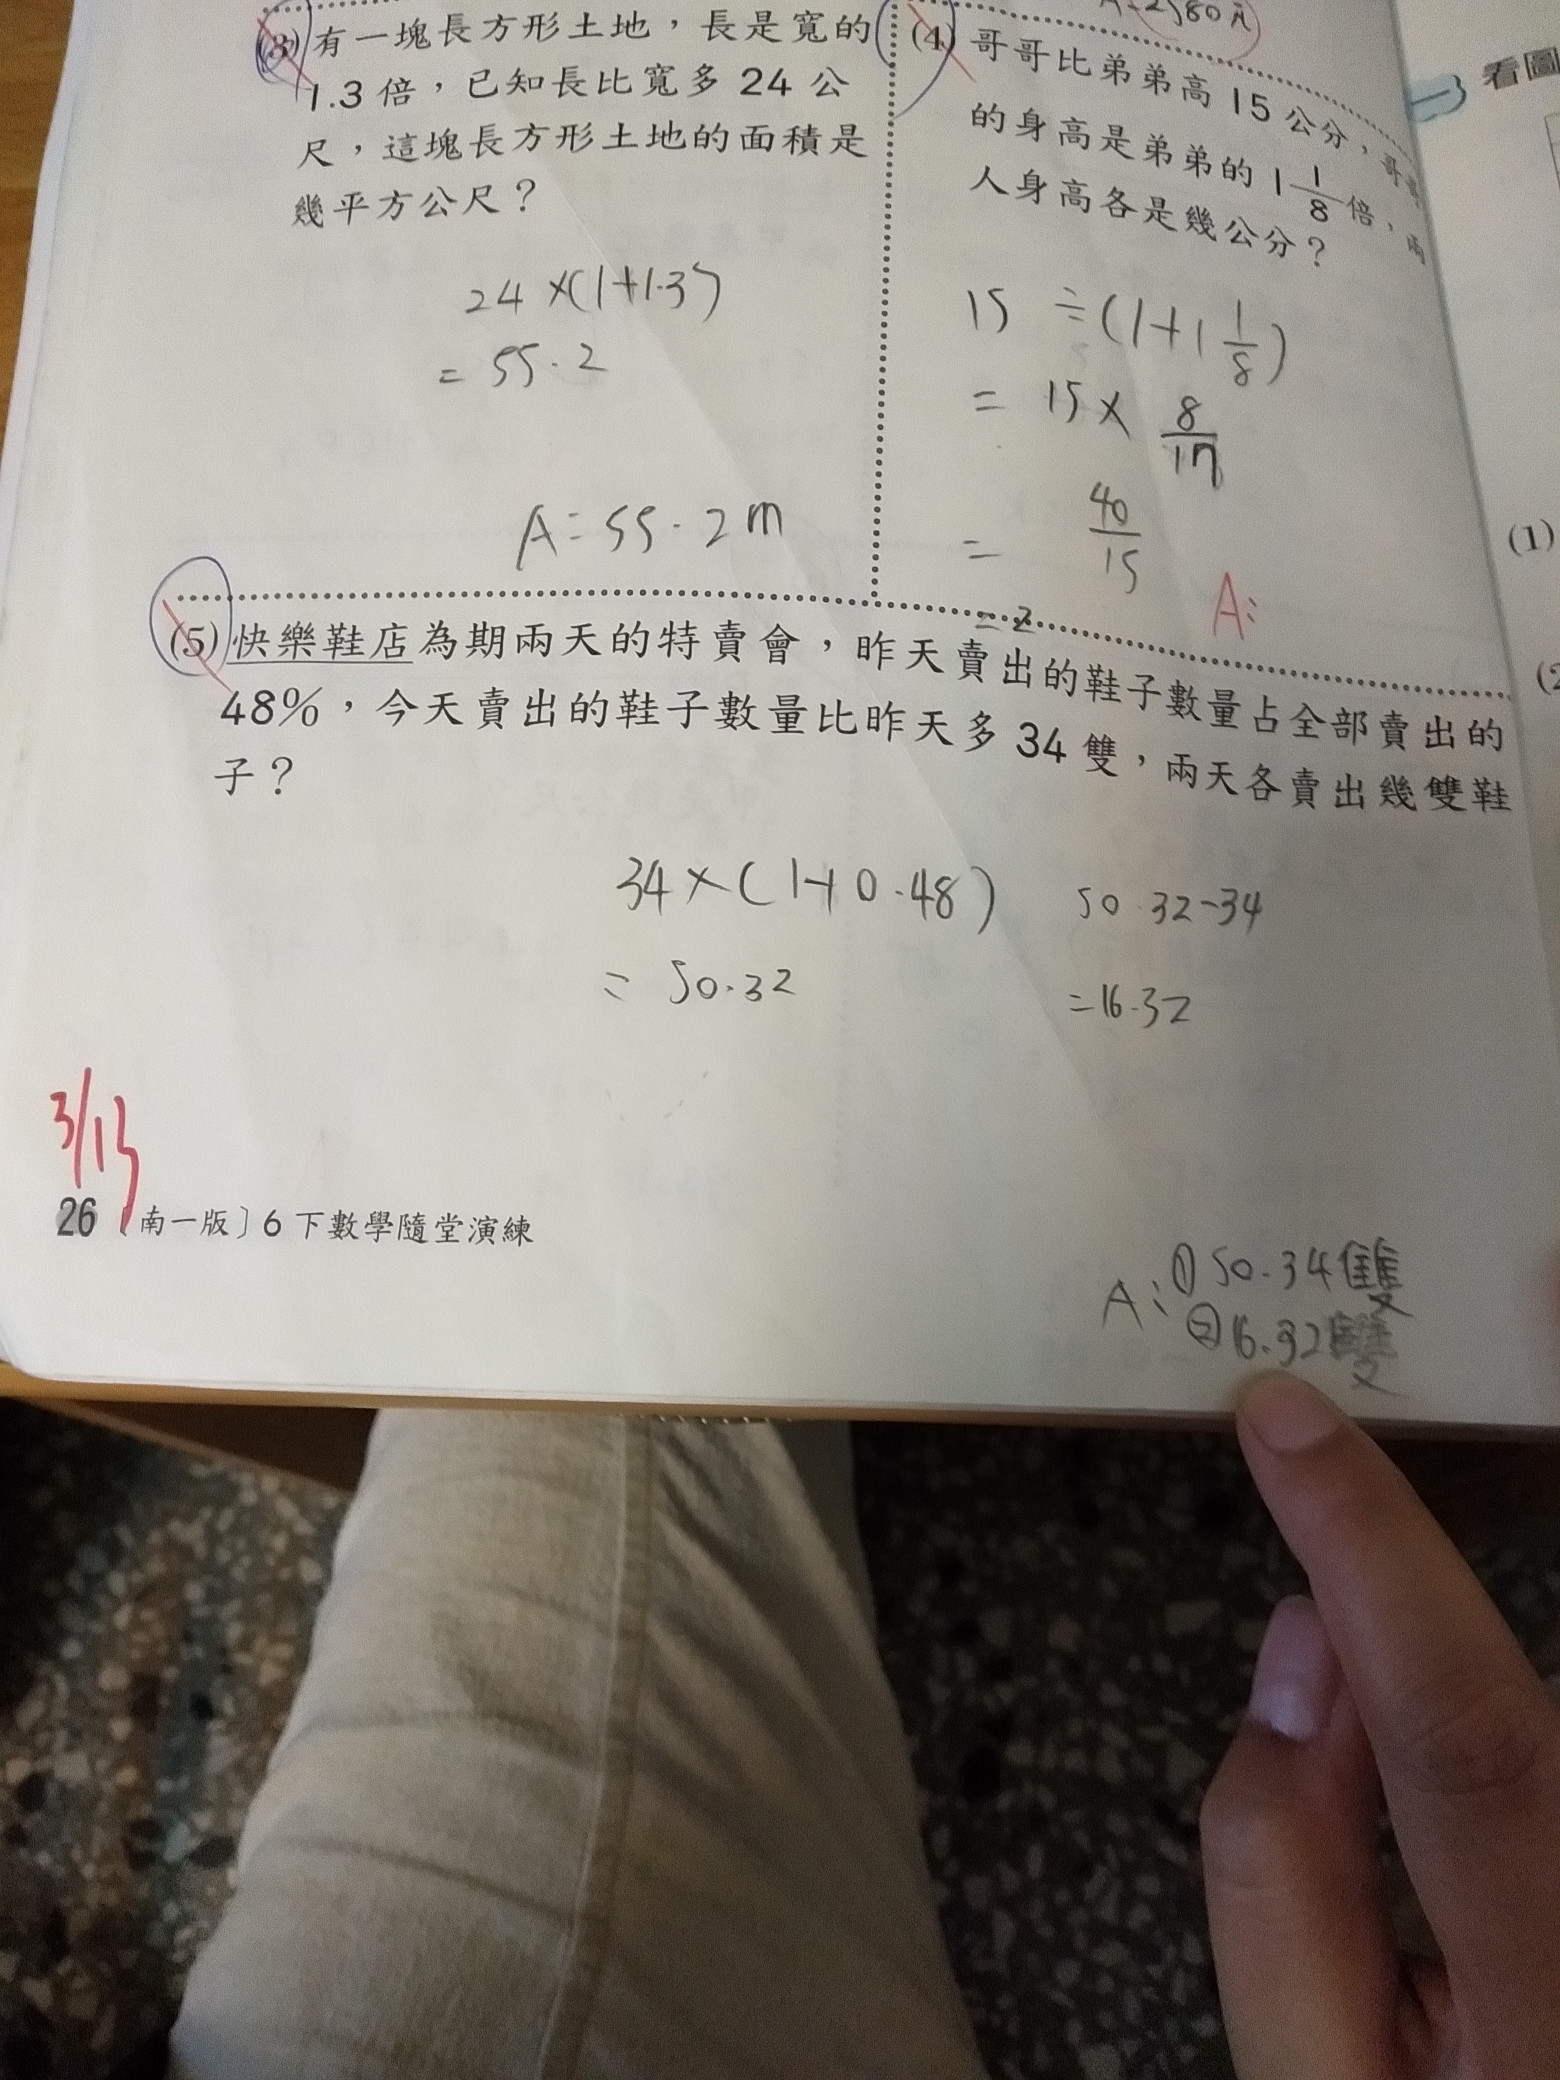 (3)有一塊長方形土地，長是寬的
1.3 倍，已知長比寬多 24 公
尺，這塊長方形土地的面積是
幾平方公尺？
24×(1+1.3)
= 55.2
A：55.2m
(4)哥哥比弟弟高 15 公分，哥哥
的身高是弟弟的 1 1/8 倍，兩
人身高各是幾公分？
15 ÷(1+1 1/8)
= 15× 8/17
= 40/15
= 2
A:
(5)快樂鞋店為期兩天的特賣會，昨天賣出的鞋子數量占全部賣出的
48%，今天賣出的鞋子數量比昨天多 34 雙，兩天各賣出幾雙鞋
子？
34×(1+0.48)
= 50.32
50.32-34
=16.32
3/13
26〔南一版〕6 下數學隨堂演練
A：①50.34雙
②16.32雙
看圖
(1)